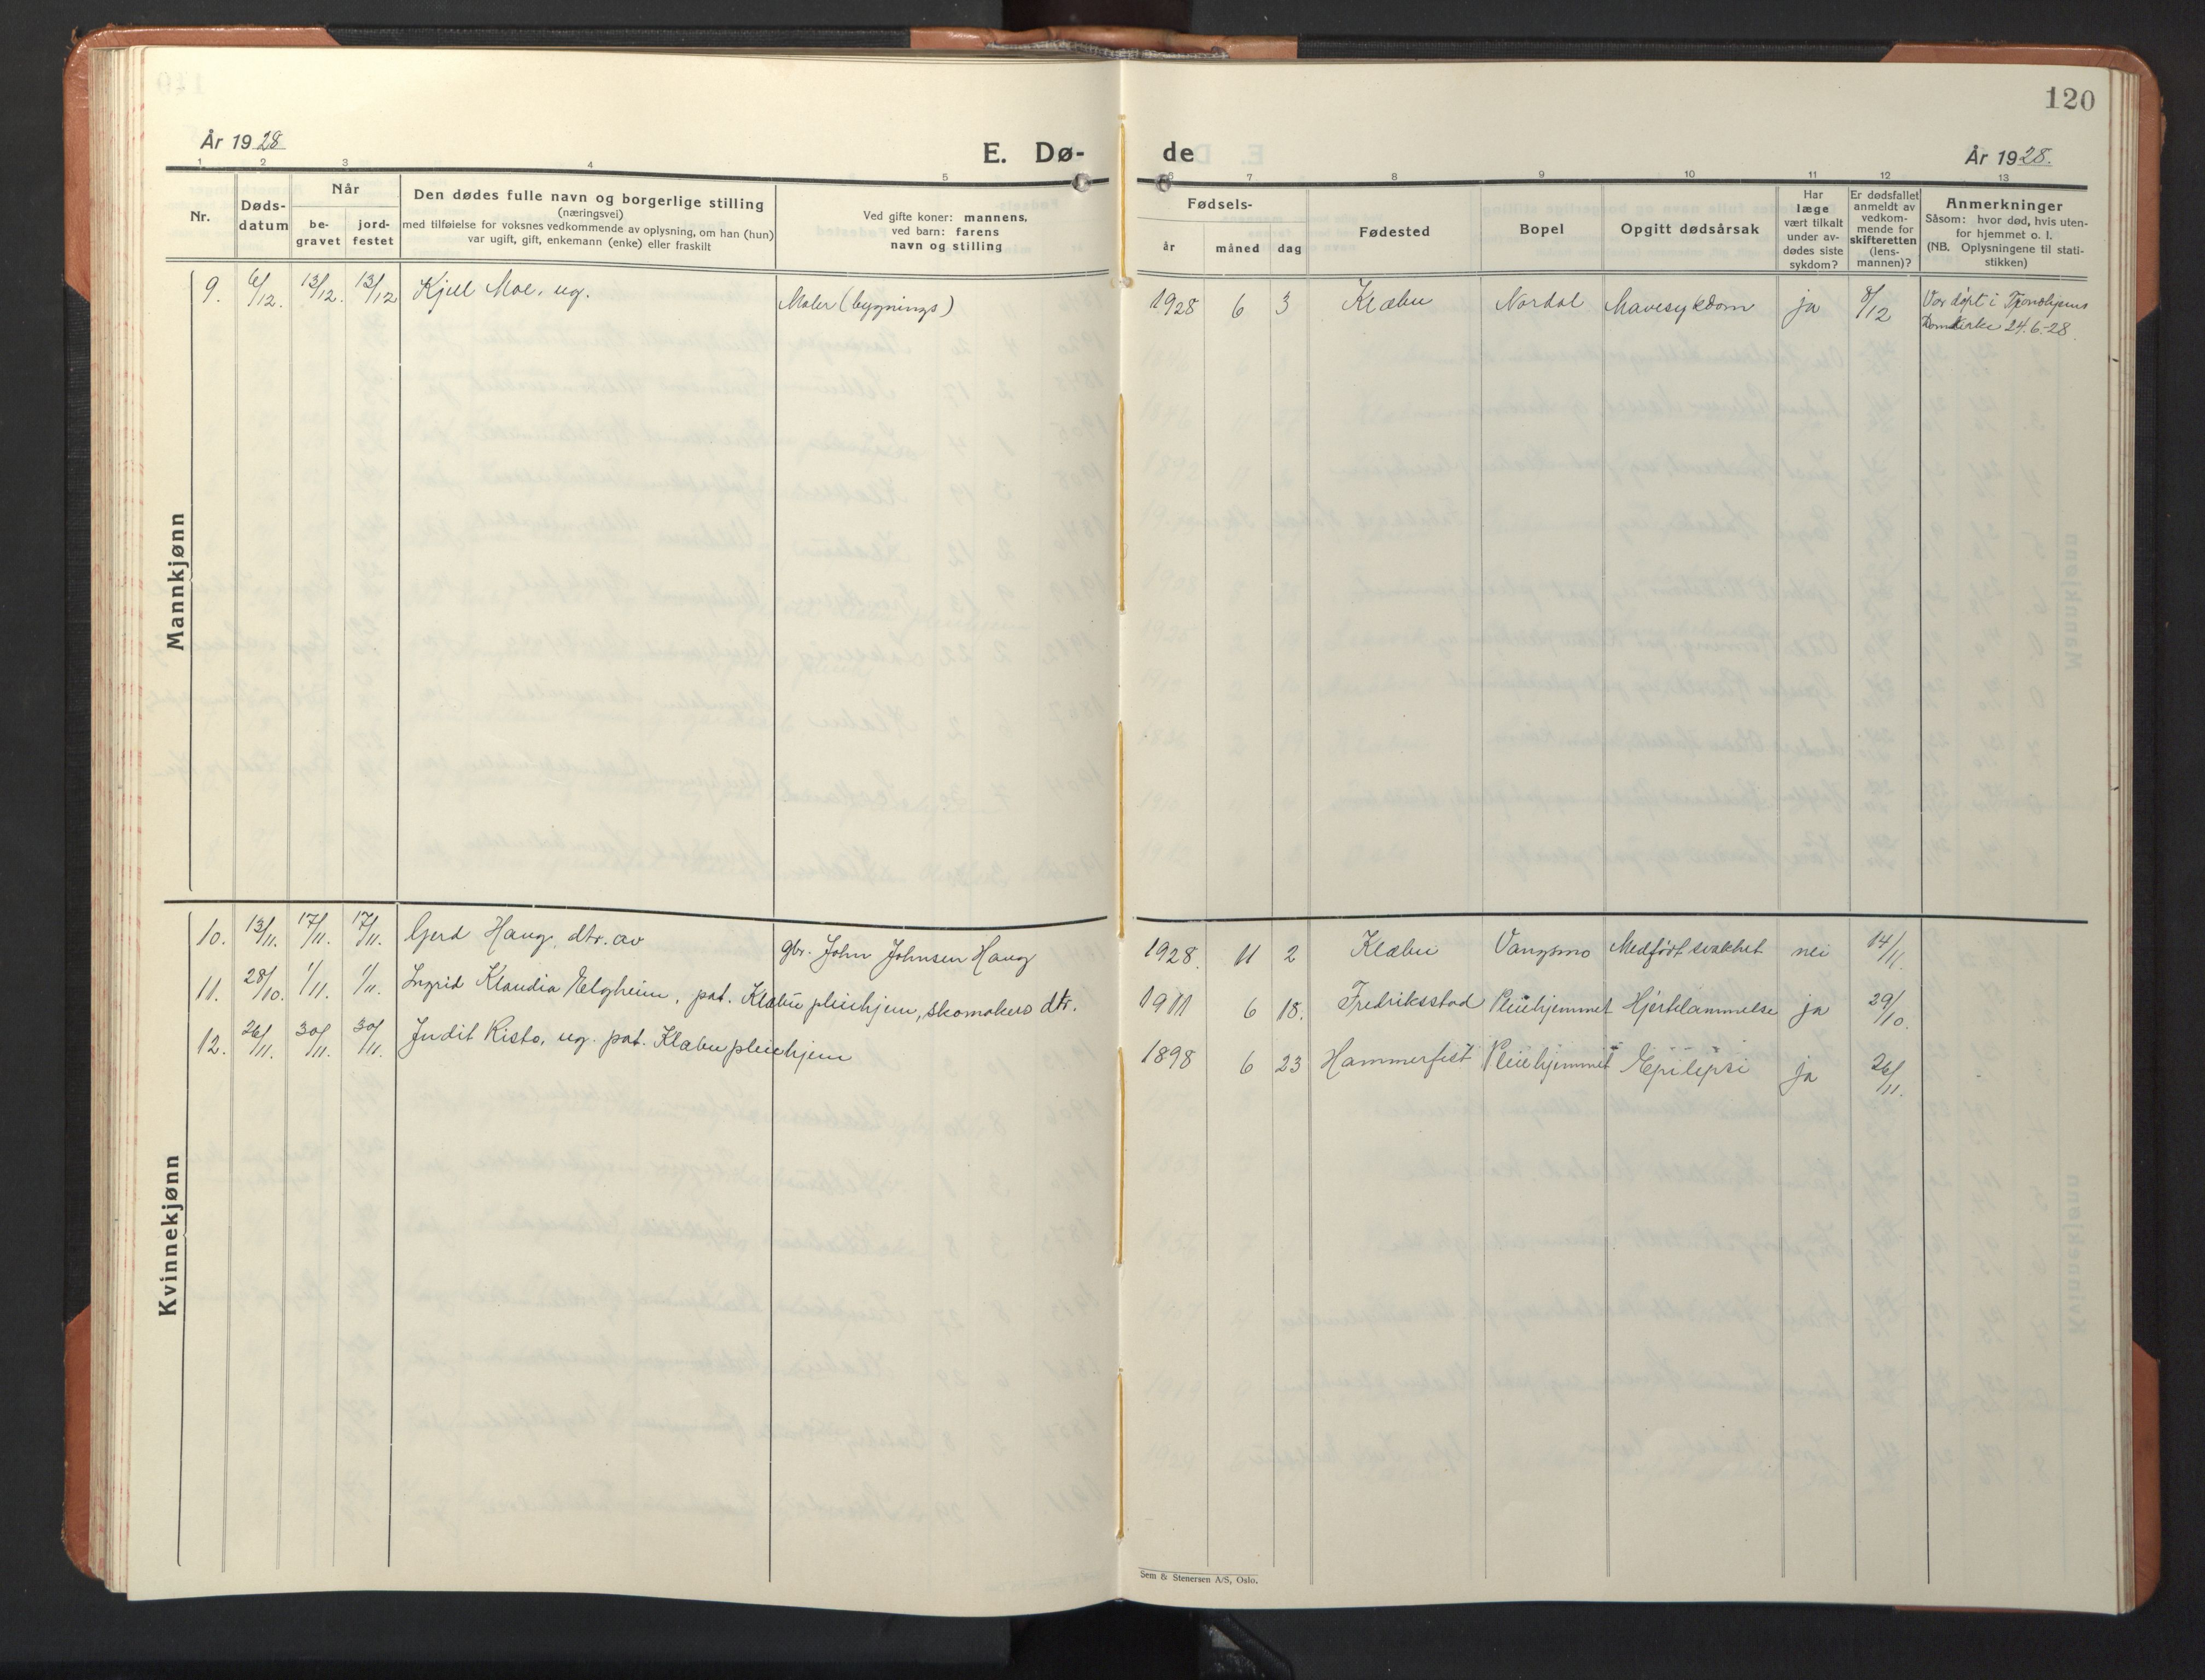 120
År 1928
E. Dø-
de
År 1928.
1 2 3 4 5 6 7 8 9 10 11 12 13
Nr.
Døds-
datum
Når
be-
gravet
jord-
festet
Den dødes fulle navn og borgerlige stilling
(næringsvei)
med tilføielse for voksnes vedkommende av oplysning, om han (hun)
var ugift, gift, enkemann (enke) eller fraskilt
Ved gifte koner: mannens,
ved barn: farens
navn og stilling
Fødsels-
år
måned
dag
Fødested
Bopel
Opgitt dødsårsak
Har
læge
vært tilkalt
under av-
dødes siste
sykdom?
Er dødsfallet
anmeldt av
vedkom-
mende for
skifteretten
(lens-
mannen)?
Anmerkninger
Såsom: hvor død, hvis uten-
for hjemmet o. l.
(NB. Oplysningene til stati-
stikken)
Mannkjønn
9. 6/12. 13/12. 13/12 Kjell Moe, ug. Maler (bygnings) 1928 6 3 Klæbu Nordal Mavesykdom ja 8/12 Var døpt i Trondhjems
Domkirke 24.6.-28.
Kvinnekjønn
10. 13/11. 17/11. 17/11. Gerd Haug, dtr. av gbr. John Johnsen Haug 1928. 11 2 Klæbu Vangsmo Medfødt svakhet nei 14/11.
11. 28/10. 1/11. 1/11. Ingrid Klaudia Elgheim, pat. Klæbu pleiehjem, skomakers dtr. 1911 6 18. Fredriksstad Pleiehjemmet Hjertelammelse ja 29/10.
12. 26/11. 30/11. 30/11. Judit Risto, ug. pat. Klæbu pleiehjem 1898 6 23 Hammerfest Pleiehjemmet Epilepsi ja 26/11.
Sem & Stenersen A/S, Oslo.